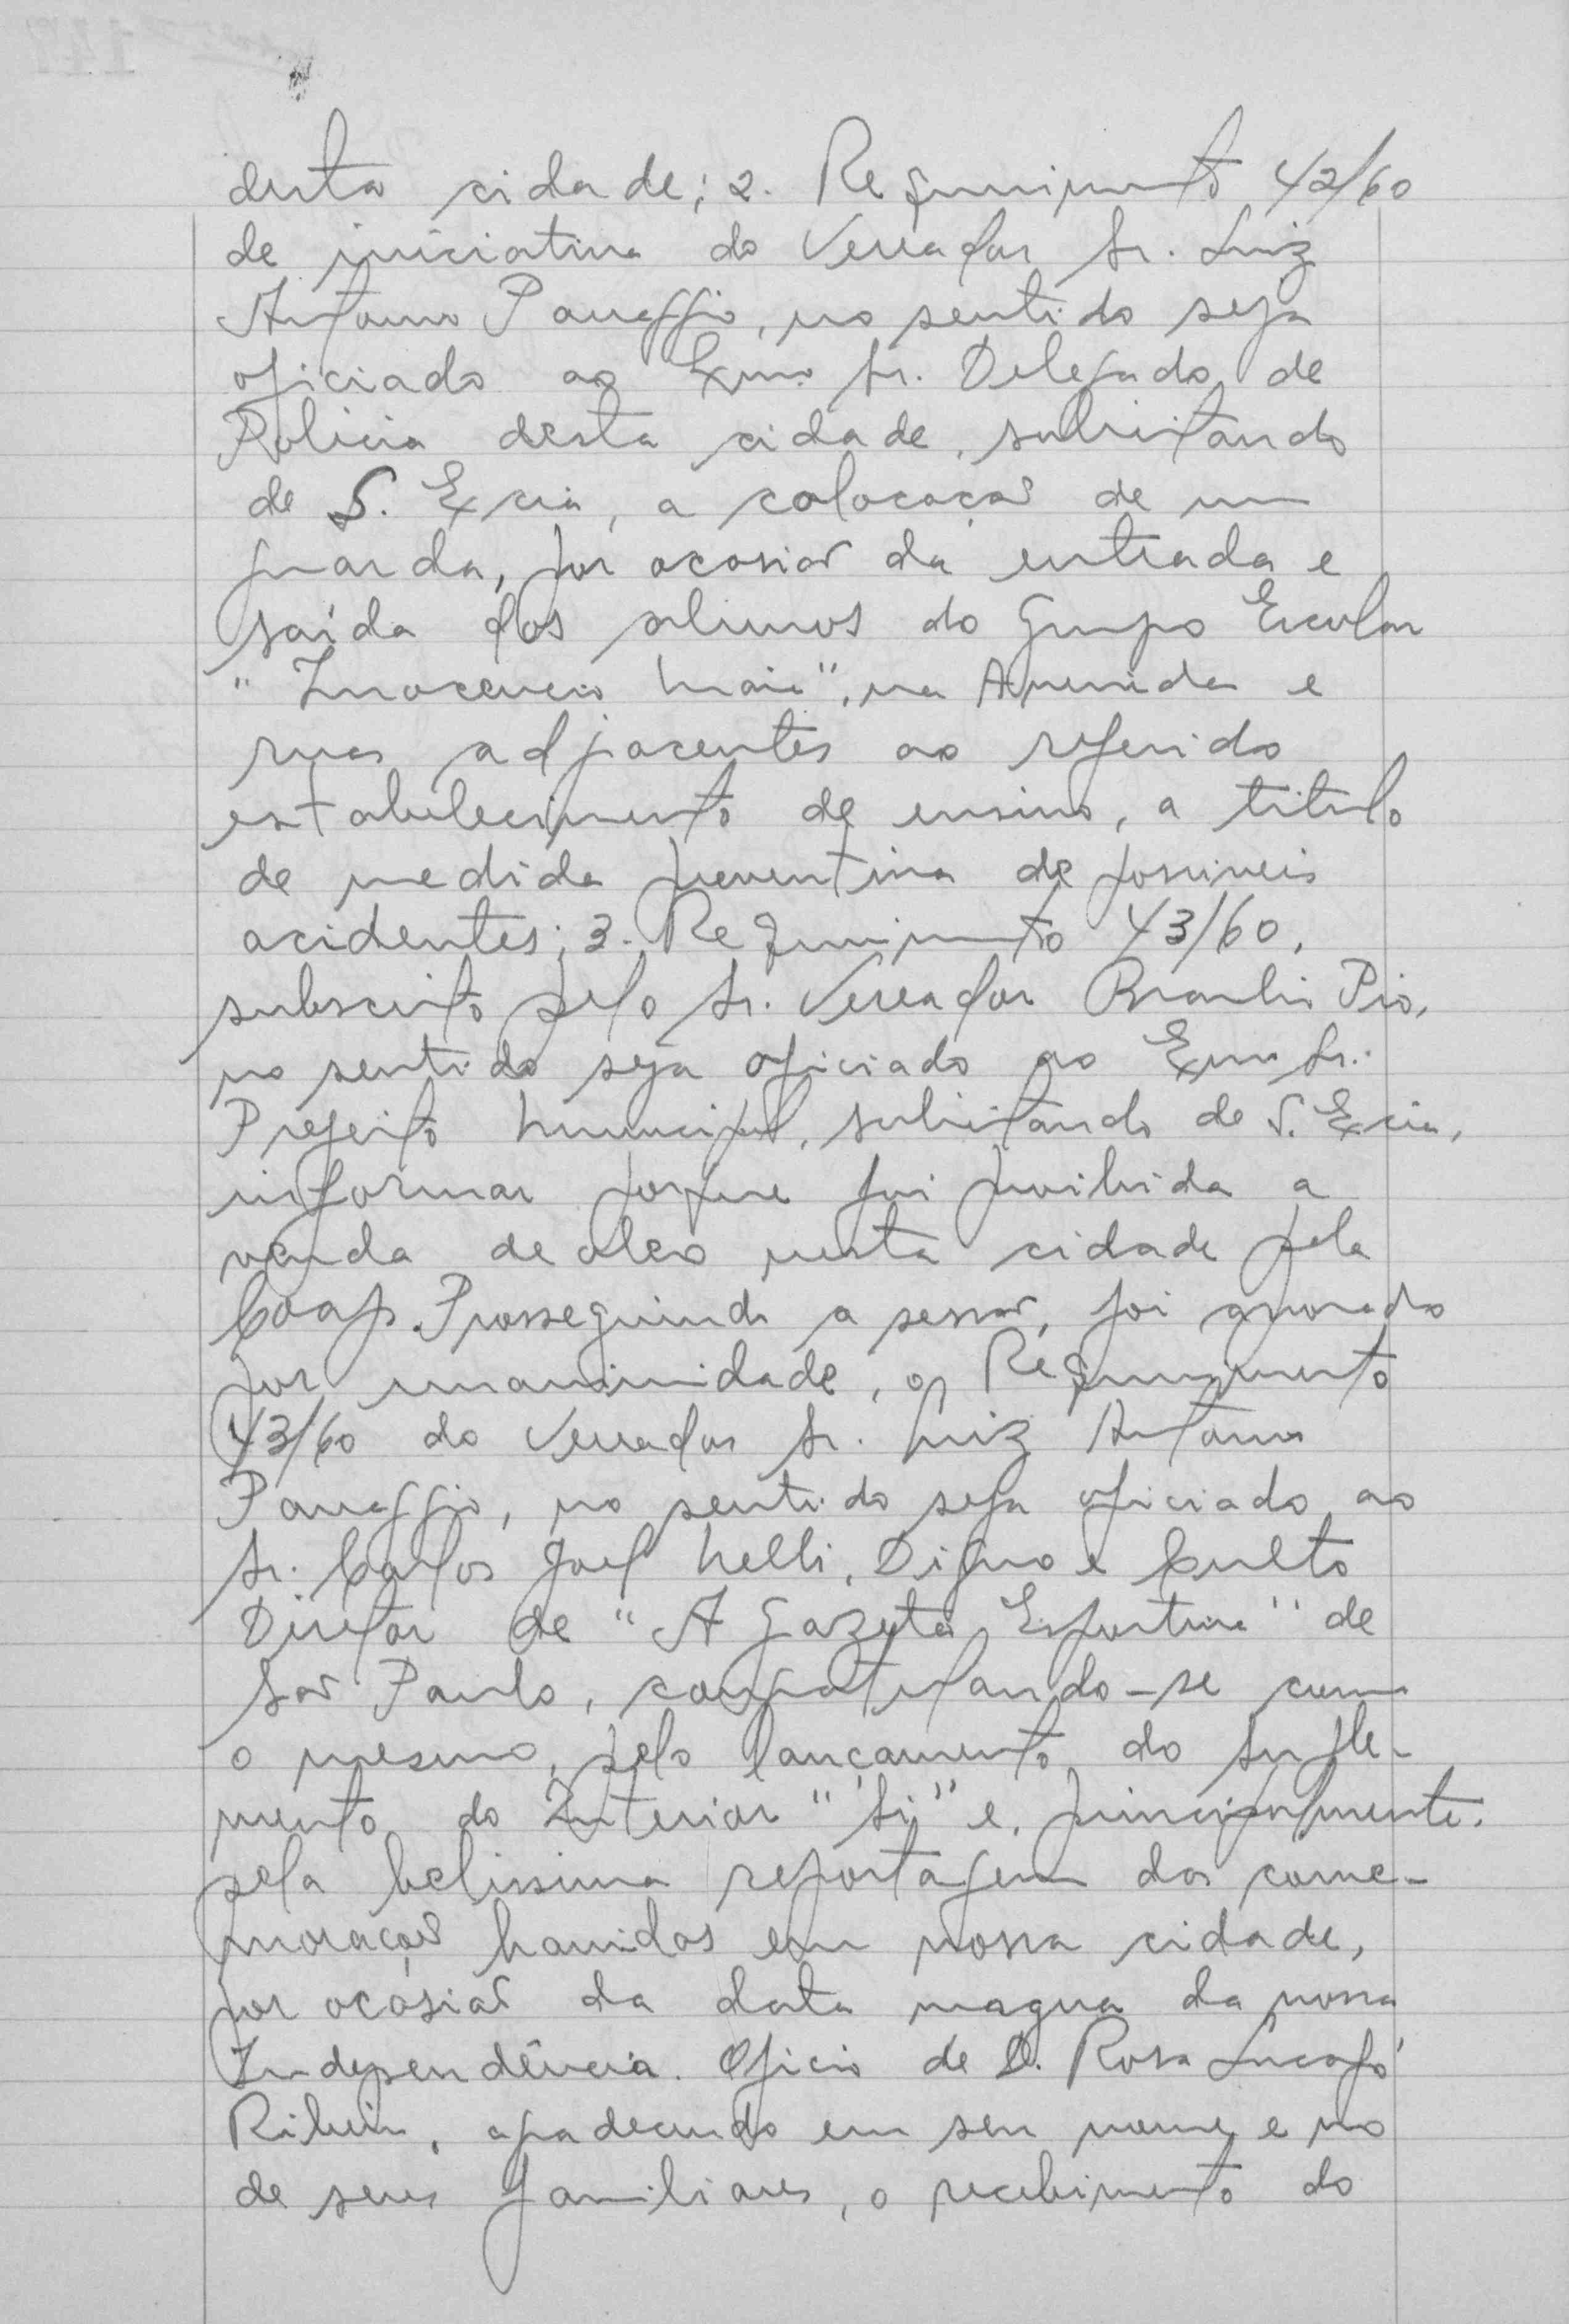 desta cidade; 2. Requerimento 42/60
de iniciativa do Vereador Sr. Luiz
Antonio Panaggio, no sentido seja
oficiado ao Exmo Sr. Delegado de
Policia desta cidade, solicitando
de S. Excia, a colocação de um
guarda, por ocasião da entrada e
saída dos alunos do Grupo Escolar
"Inocencio Maia", na Avenida e
ruas adjacentes ao referido
estabelecimento de ensino, a titulo
de medida preventiva de possiveis
acidentes; 3. Requerimento 43/60,
subscrito pelo Sr. Vereador Braulio Pio,
no sentido seja oficiado ao Exmo Sr.
Prefeito Municipal, solicitando de S. Excia,
informar porque foi proibida a
venda de oleo nesta cidade pela
Coap. Prosseguindo a sessão, foi aprovado
por unanimidade, o Requerimento
43/60 do Vereador Sr. Luiz Antonio
Panaggio, no sentido seja oficiado ao
Sr. Carlos Joel Nelli, Digno e Culto
Diretor de "A Gazeta Esportiva" de
São Paulo, congratulando-se com
o mesmo, pelo lançamento do Suple-
mento do Interior "Si" e, principalmente,
pela belissima reportagem das come-
morações havidas em nossa cidade,
por ocasião da data magna da nossa
Independência. Oficio de D. Rosa
Ribeiro, agradecendo em seu nome e no
de seus familiares, o recebimento do